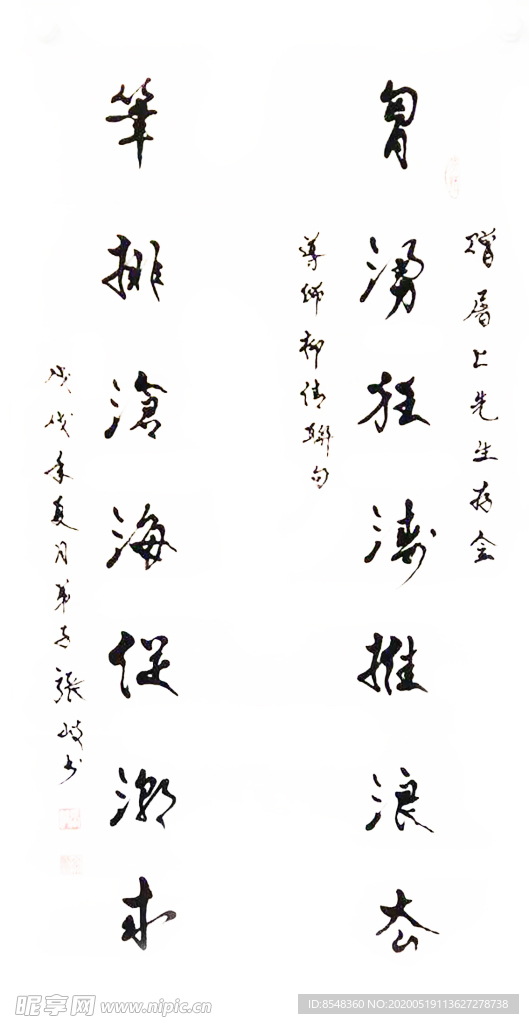 贈層上先生存念
胷湧狂濤推浪去
導師柳倩聯句
筆排滄海促潮來
戊戌年夏月弟子張岐書
昵享网 www.nipic.com
ID:8548360 NO:20200519113627278738